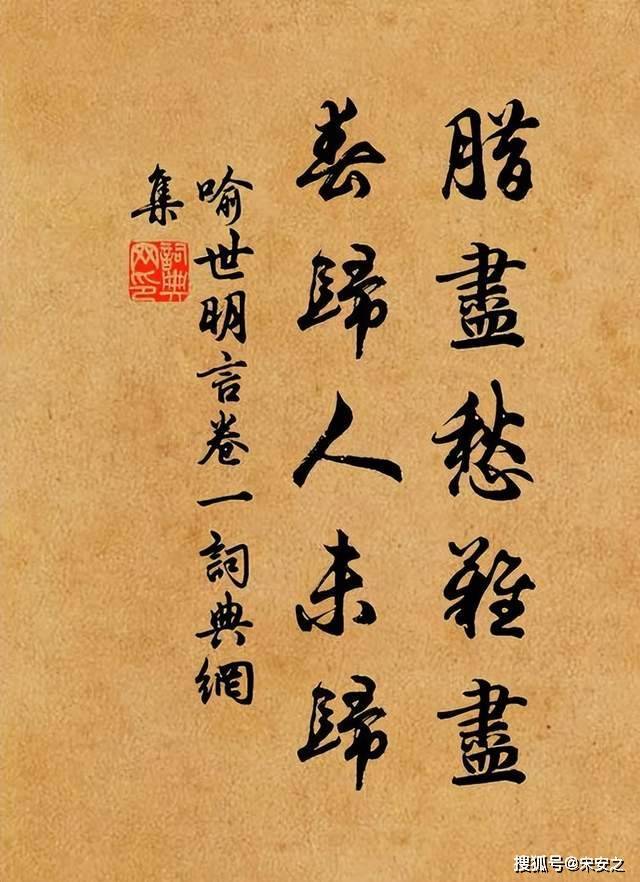 腊盡愁難盡
春歸人未歸
喻世明言卷一詞典網
集
詞典
网印
搜狐号@宋安之